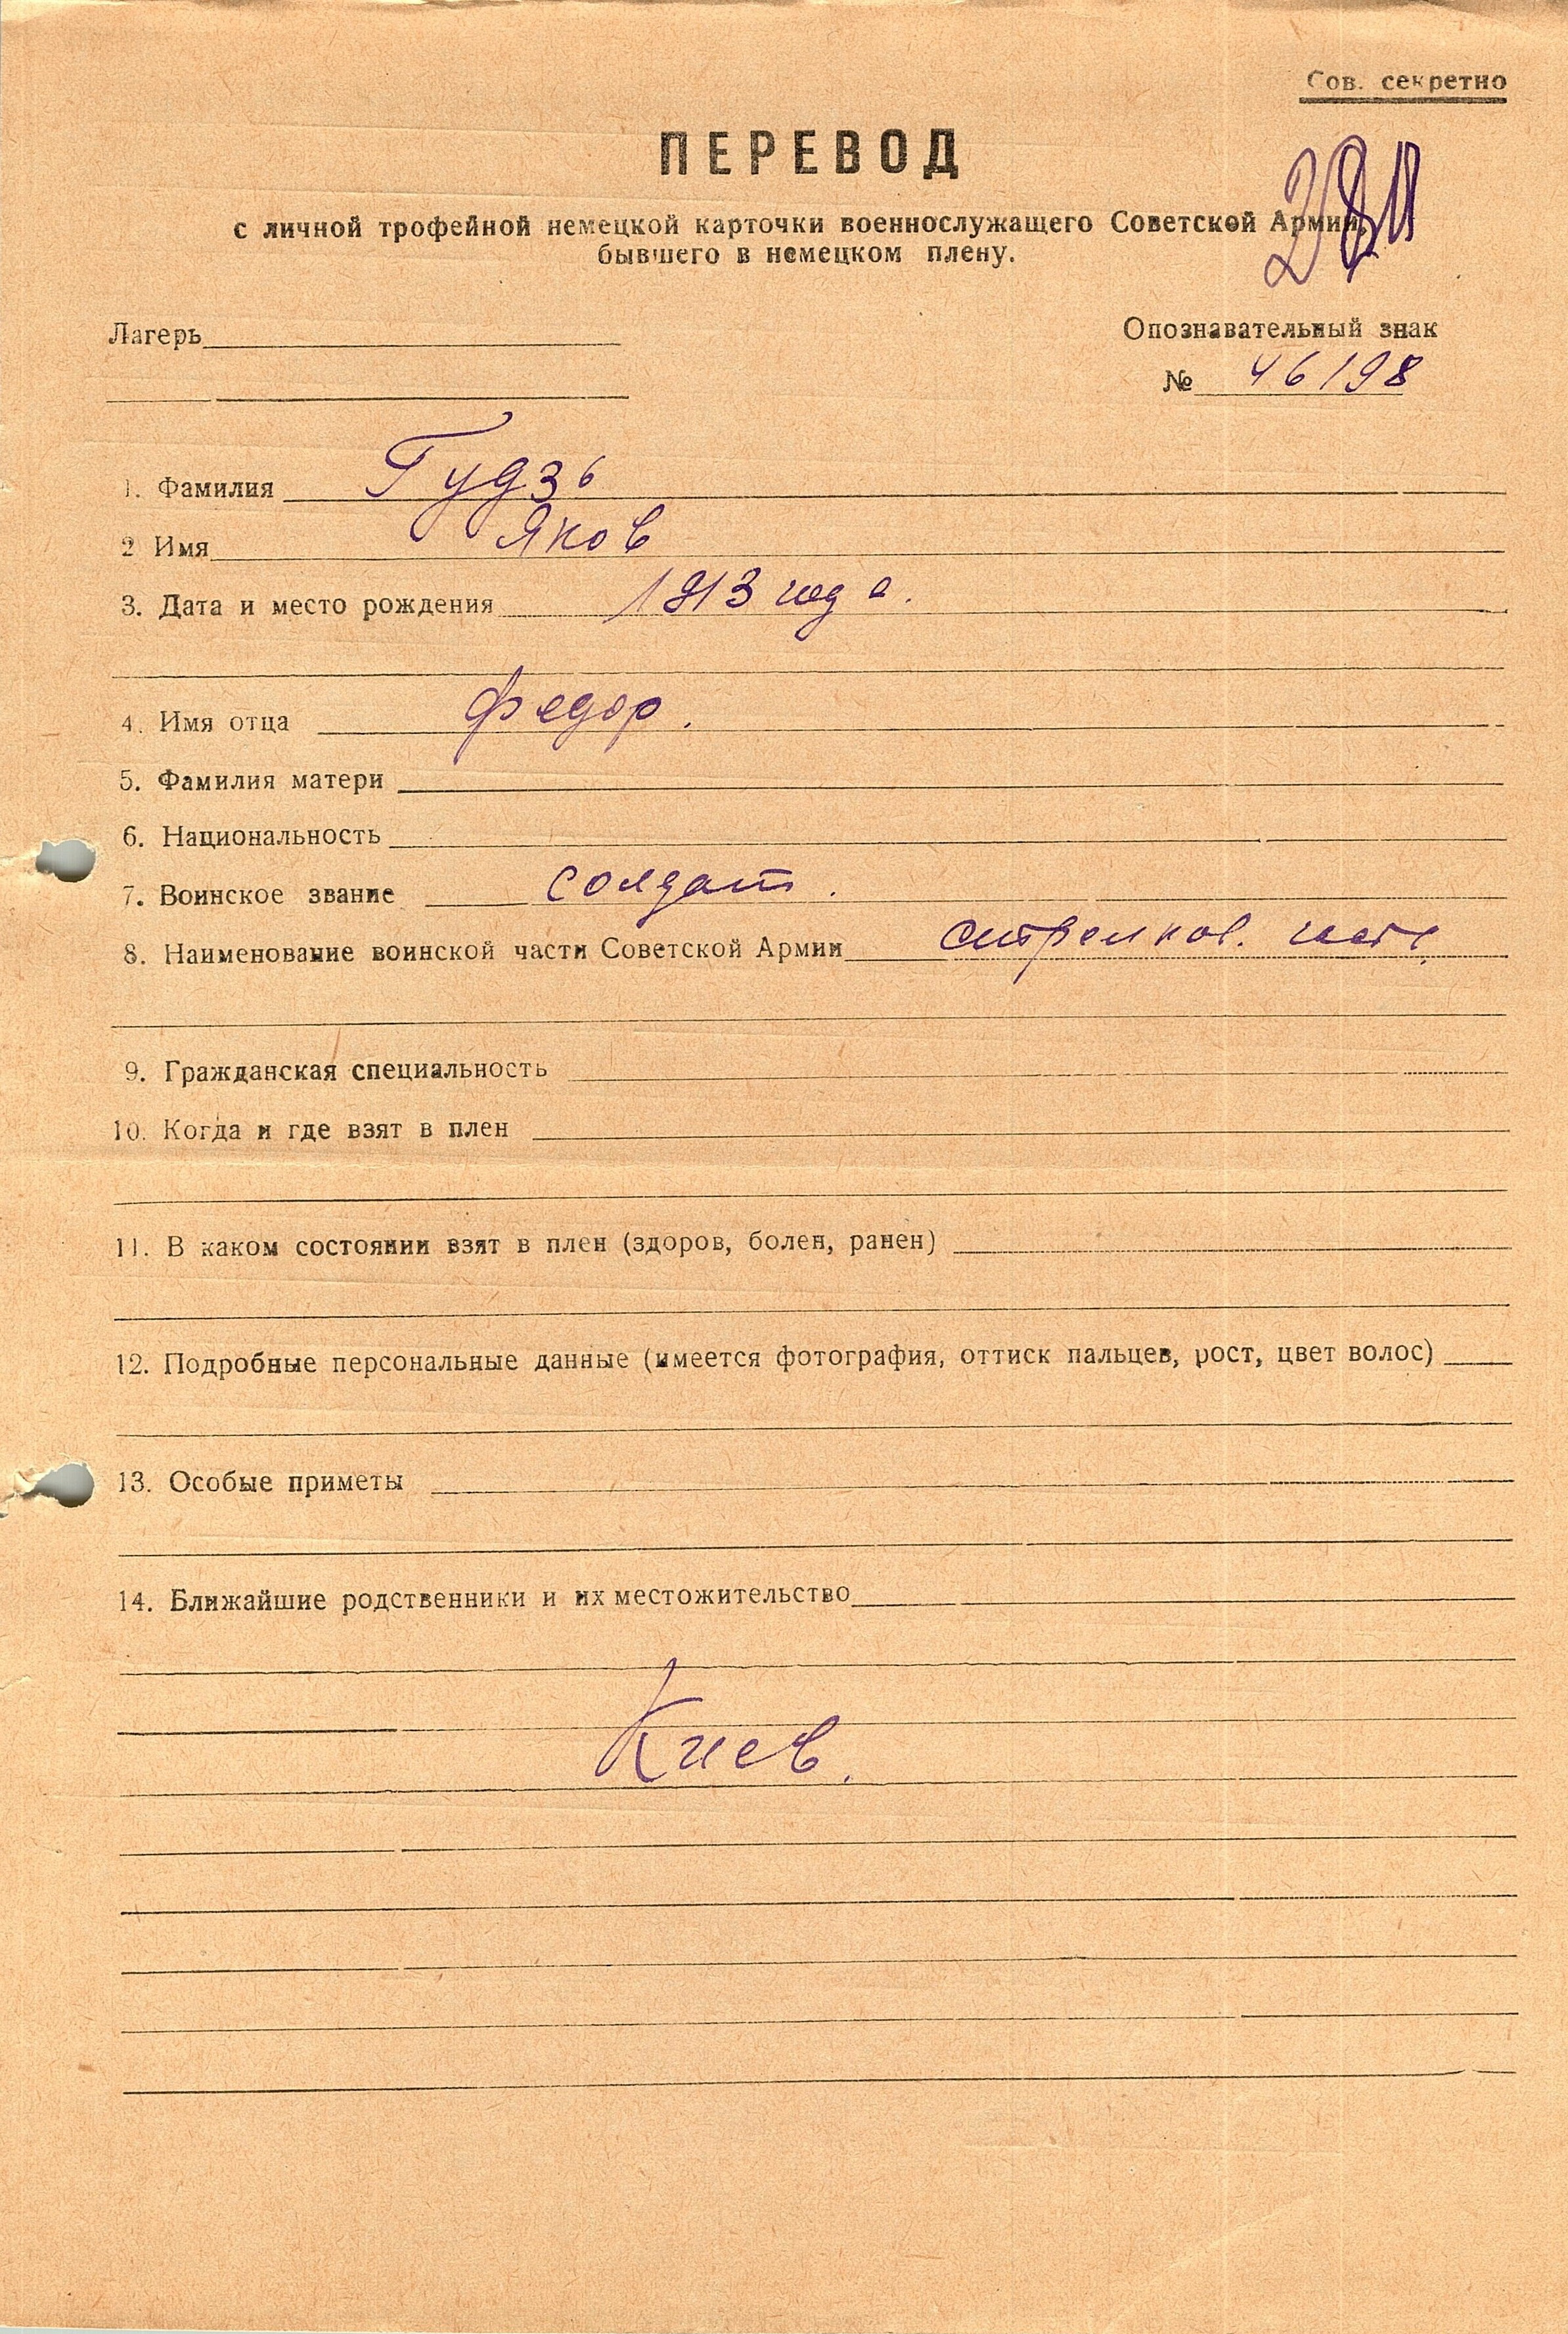 Сов. секретно
ПЕРЕВОД
с личной трофейной немецкой карточки военнослужащего Советской Армии,
бывшего в немецком плену.
Лагерь
Опознавательный знак
№ 46198
1. Фамилия Гудзь
2 Имя Яков
3. Дата и место рождения 1913 года.
4. Имя отца Федор.
5. Фамилия матери
6. Национальность
7. Воинское звание солдат.
8. Наименование воинской части Советской Армии стрелков. часть
9. Гражданская специальность
10. Когда и где взят в плен
11. В каком состоянии взят в плен (здоров, болен, ранен)
12. Подробные персональные данные (имеется фотография, оттиск пальцев, рост, цвет волос)
13. Особые приметы
14. Ближайшие родственники и их местожительство
Киев.